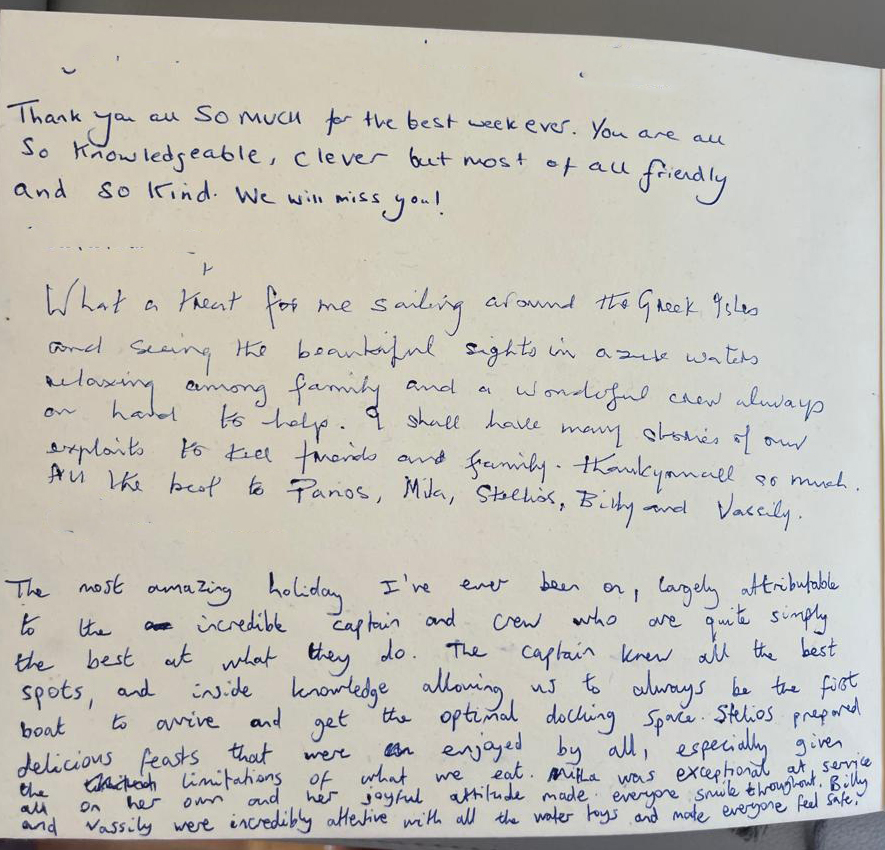 Thank you all SO MUCH for the best week ever. You are all
So Knowledgeable, clever but most of all friendly
and so kind. We will miss you!
What a treat for me sailing around the Greek Isles
and seeing the beautiful sights in azure waters
relaxing among family and a wonderful crew always
on hand to help. I shall have many stories of our
exploits to tell friends and family. thankyou all so much.
All the best to Panos, Mila, Stellios, Billy and Vassily.
The most amazing holiday I've ever been on, largely attributable
to the incredible captain and crew who are quite simply
the best at what they do. The captain knew all the best
spots, and inside knowledge allowing us to always be the first
boat to arrive and get the optimal docking space. Stelios prepared
delicious feasts that were enjoyed by all, especially given
the limitations of what we eat. Milla was exceptional at service
all on her own and her joyful attitude made everyone smile throughout. Billy
and Vassily were incredibly attentive with all the water toys and made everyone feel safe.